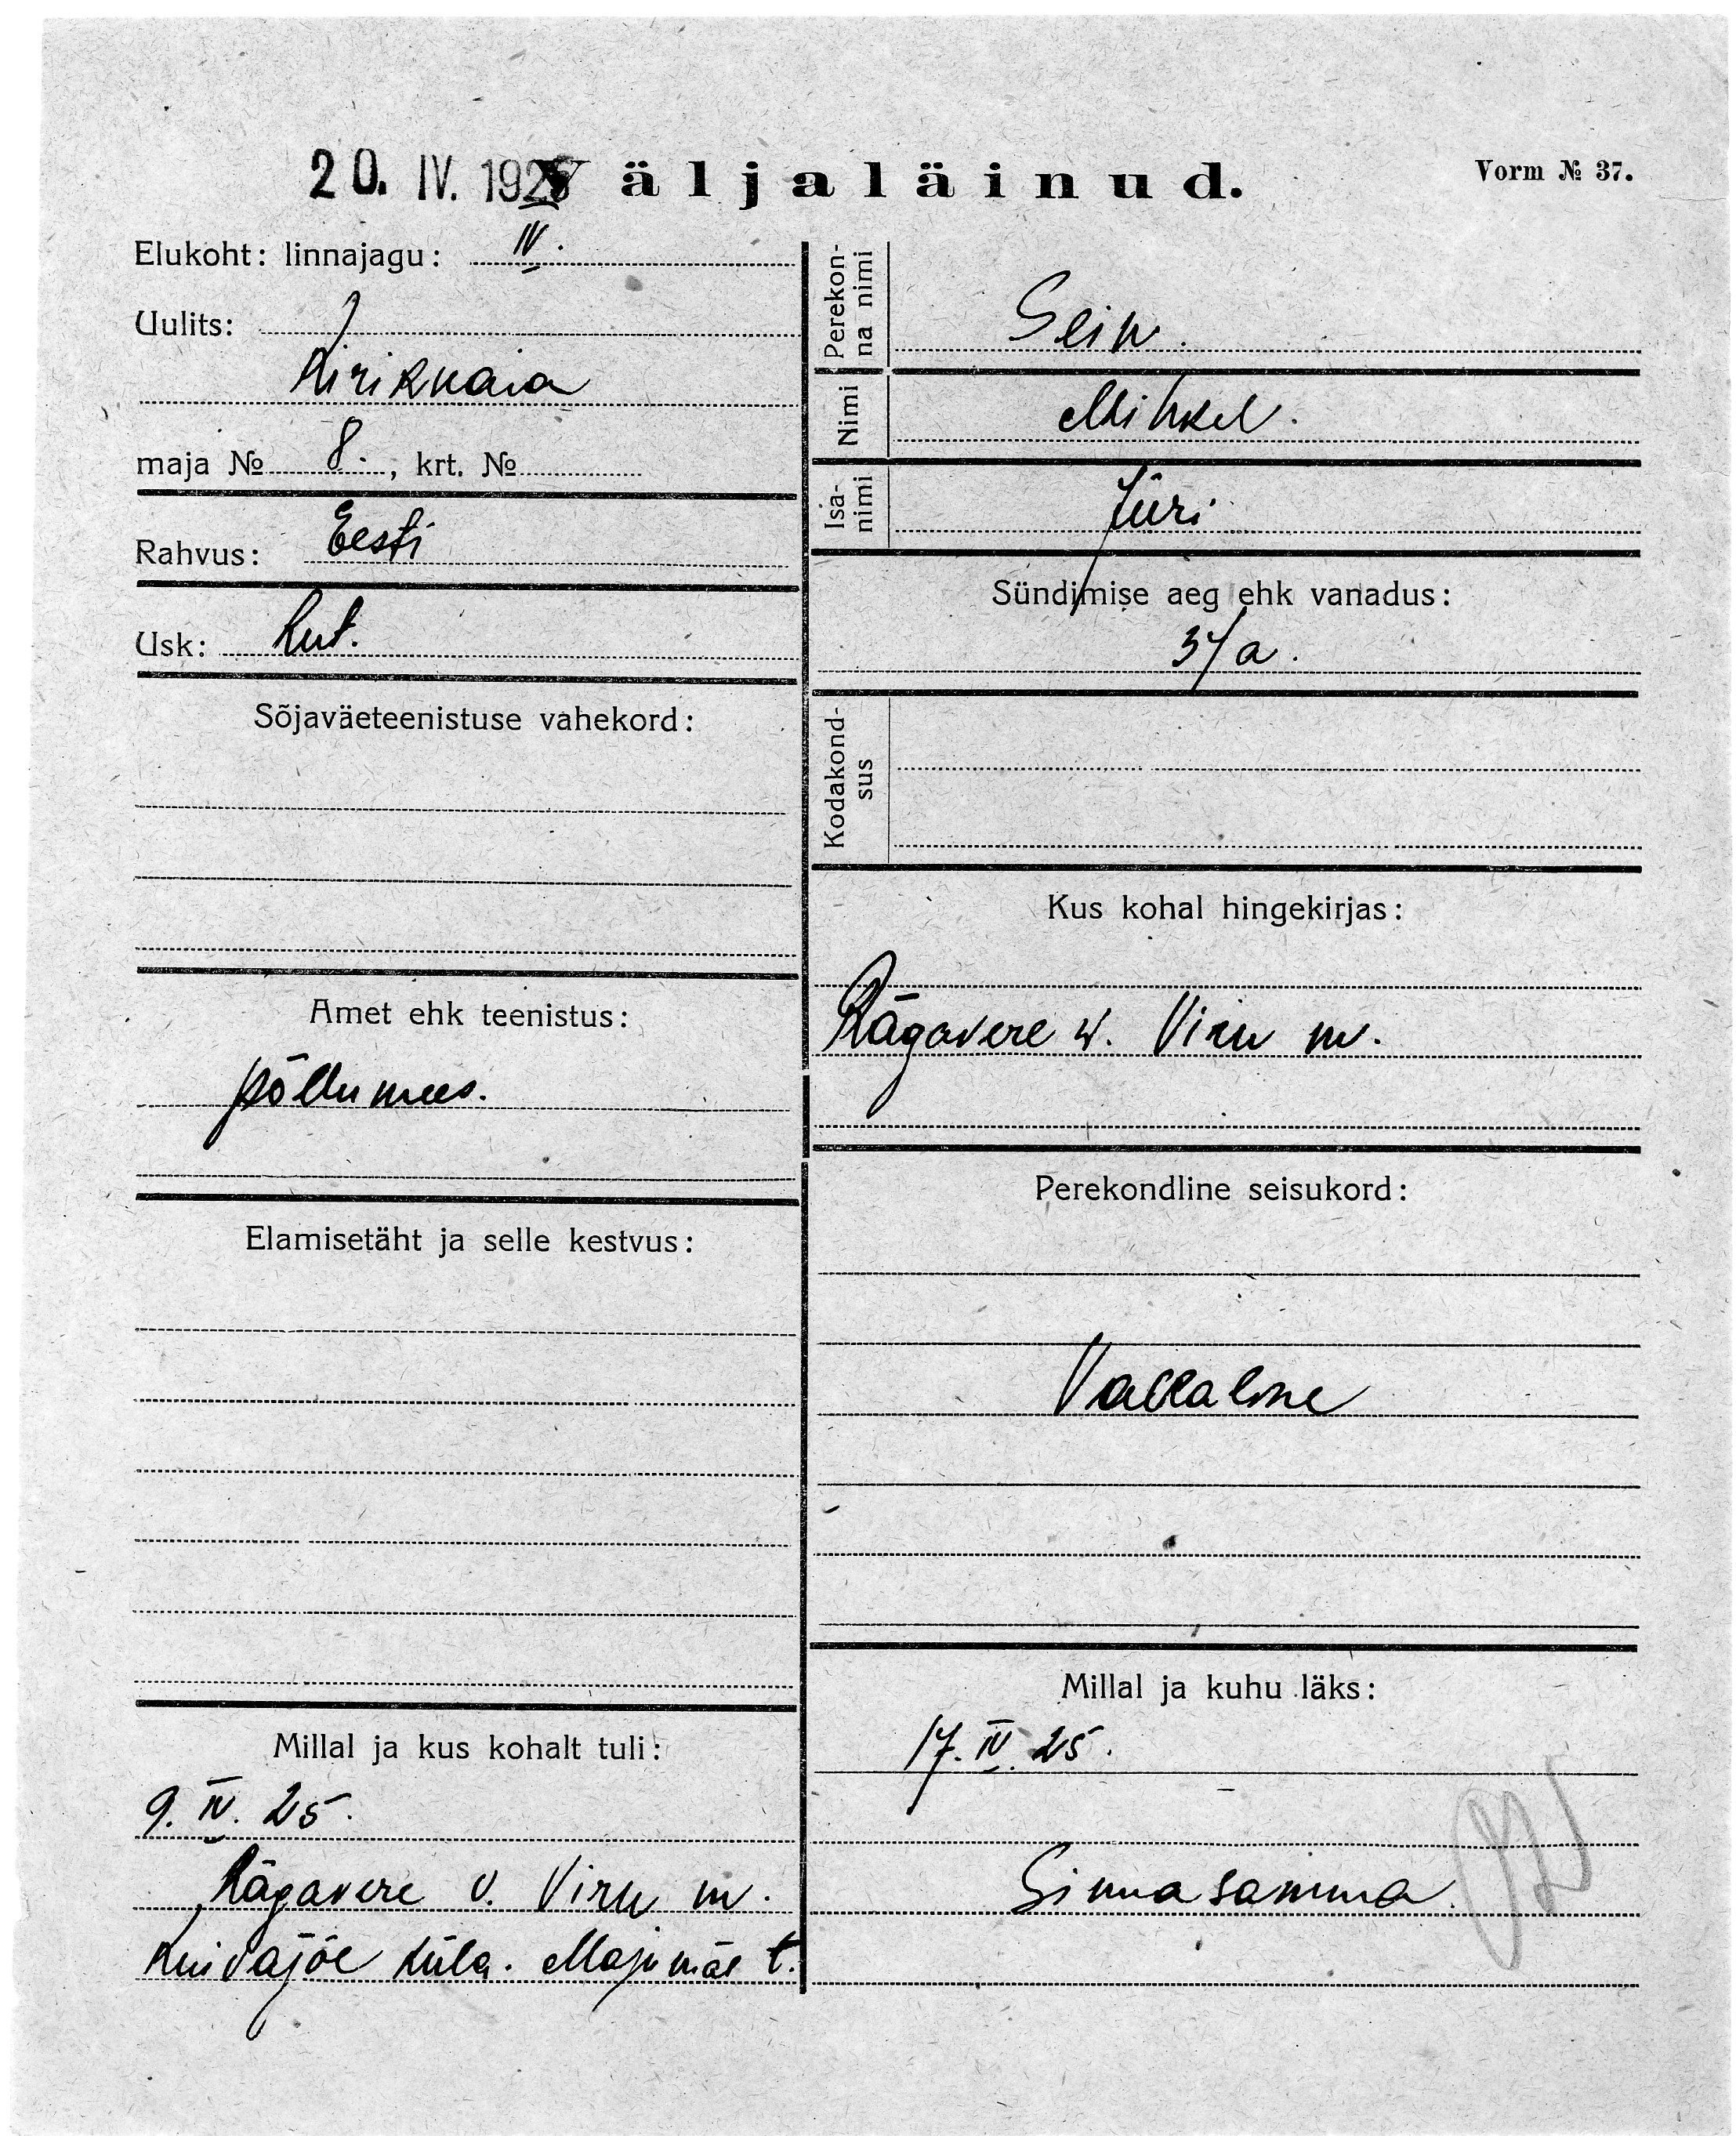 20. IV. 1925 Väljaläinud.
Vorm № 37.
Elukoht: linnajagu: IV.
Uulits:
Kiriknaia
maja № 8., krt. №
Rahvus: Eesti
Usk: Lut.
Sõjaväeteenistuse vahekord:
Amet ehk teenistus:
põllumees.
Elamisetäht ja selle kestvus:
Millal ja kus kohalt tuli:
9. IV. 25.
Rägavere v. Viru m.
küla.
t.
Perekon-
na nimi
Sein.
Nimi
Mihkel.
Isa-
nimi
Jüri
Sündimise aeg ehk vanadus:
37 a.
Kodakond-
sus
Kus kohal hingekirjas:
Rägavere w. Viru m.
Perekondline seisukord:
Vallaline
Millal ja kuhu läks:
17. IV. 25.
Sinna samma.